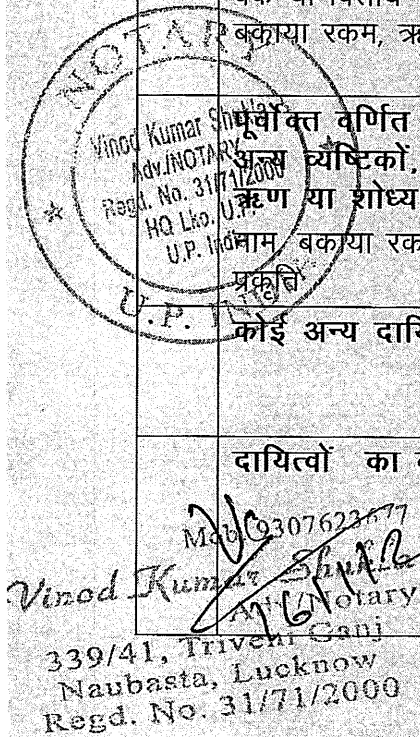 बकाया रकम,
NOTARY
Vinod Kumar Shukla
Adv./NOTARY
Regd. No. 31/71/2000
HQ Lko. U.P.
U.P. India
U.P. INDIA
पूर्वोक्त वर्णित
अन्य व्यष्टिकों,
ऋण या शोध्य
नाम, बकाया
प्रकृति
कोई अन्य
दायित्वों का
Mob. 9307623677
Vinod Kumar Shukla
Adv./Notary
339/41, Triveni Ganj
Naubasta, Lucknow
Regd. No. 31/71/2000